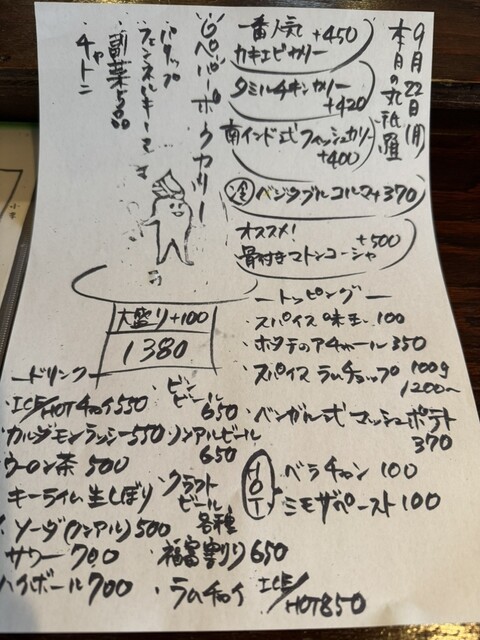 9月22日(月)
本日の丸祇羅
一番人気
カキエビカリー +450
タミルチキンカリー
+420
南インド式フィッシュカリー
+400
冷 ベジタブルコルマ+370
オススメ!
骨付きマトンコーシャ +500
ペパーポークカリー
パラップ
副菜5品
チャトニ
大盛り+100
1380
ートッピングー
・スパイス味玉 100
・ホタテのアチャール 350
・スパイスラムチョップ 100g
1200~
・ベンガル式マッシュポテト
370
HOT
ベラチャン 100
ミモザペースト 100
ードリンクー
・ICE/HOTチャイ550
カルダモンラッシー550
ウーロン茶 500
キーライム生しぼり
・ソーダ(ノンアル)500
サワー 700
ハイボール700
・ビンビール
650
・ノンアルビール
650
・クラフトビール
各種
・福富割り650
・ラムチャイ ICE/HOT850